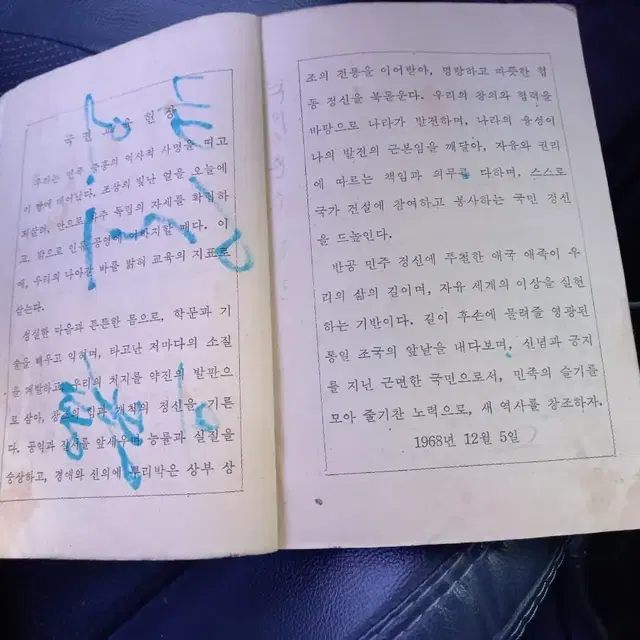 국 민 교 육 헌 장
우리는 민족 중흥의 역사적 사명을 띠고
이 땅에 태어났다. 조상의 빛난 얼을 오늘에
되살려, 안으로 자주 독립의 자세를 확립하
고, 밖으로 인류 공영에 이바지할 때다. 이
에, 우리의 나아갈 바를 밝혀 교육의 지표로
삼는다.
성실한 마음과 튼튼한 몸으로, 학문과 기
술을 배우고 익히며, 타고난 저마다의 소질
을 계발하고, 우리의 처지를 약진의 발판으
로 삼아, 창조의 힘과 개척의 정신을 기른
다. 공익과 질서를 앞세우며 능률과 실질을
숭상하고, 경애와 신의에 뿌리박은 상부 상
조의 전통을 이어받아, 명랑하고 따뜻한 협
동 정신을 북돋운다. 우리의 창의와 협력을
바탕으로 나라가 발전하며, 나라의 융성이
나의 발전의 근본임을 깨달아, 자유와 권리
에 따르는 책임과 의무를 다하며, 스스로
국가 건설에 참여하고 봉사하는 국민 정신
을 드높인다.
반공 민주 정신에 투철한 애국 애족이 우
리의 삶의 길이며, 자유 세계의 이상을 실현
하는 기반이다. 길이 후손에 물려줄 영광된
통일 조국의 앞날을 내다보며, 신념과 긍지
를 지닌 근면한 국민으로서, 민족의 슬기를
모아 줄기찬 노력으로, 새 역사를 창조하자.
1968년 12월 5일